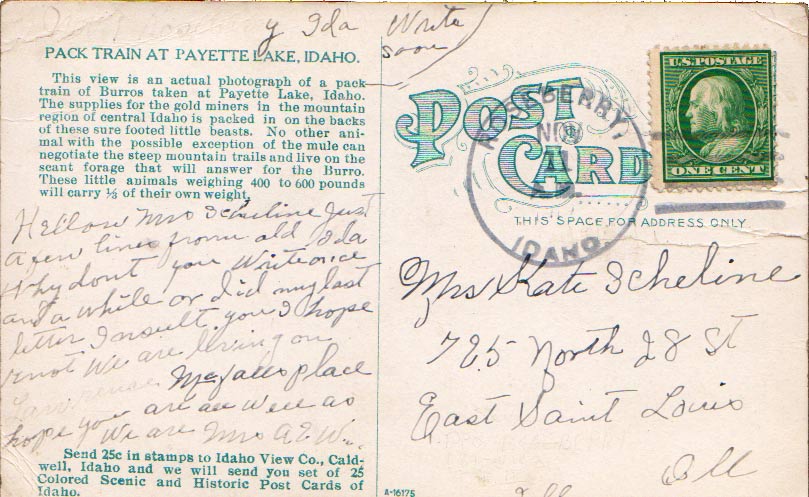 y Ida Write
soon
PACK TRAIN AT PAYETTE LAKE, IDAHO.
This view is an actual photograph of a pack
train of Burros taken at Payette Lake, Idaho.
The supplies for the gold miners in the mountain
region of central Idaho is packed in on the backs
of these sure footed little beasts. No other ani-
mal with the possible exception of the mule can
negotiate the steep mountain trails and live on the
scant forage that will answer for the Burro.
These little animals weighing 400 to 600 pounds
will carry ⅓ of their own weight.
Hellow Mrs Scheline Just
a few lines from old Ida
Why dont you Write once
and a while or did my last
letter Insult you I hope
not We are living on
Lawrence McFalls place
hope you are all well as
We are Mrs A E
Send 25c in stamps to Idaho View Co., Cald-
well, Idaho and we will send you set of 25
Colored Scenic and Historic Post Cards of
Idaho.
POST
CARD
ROSEBERRY,
NOV
1
IDAHO.
U.S. POSTAGE
ONE CENT
THIS SPACE FOR ADDRESS ONLY
Mrs Kate Scheline
725 North 28 St
East Saint Louis
Ill
A-16175